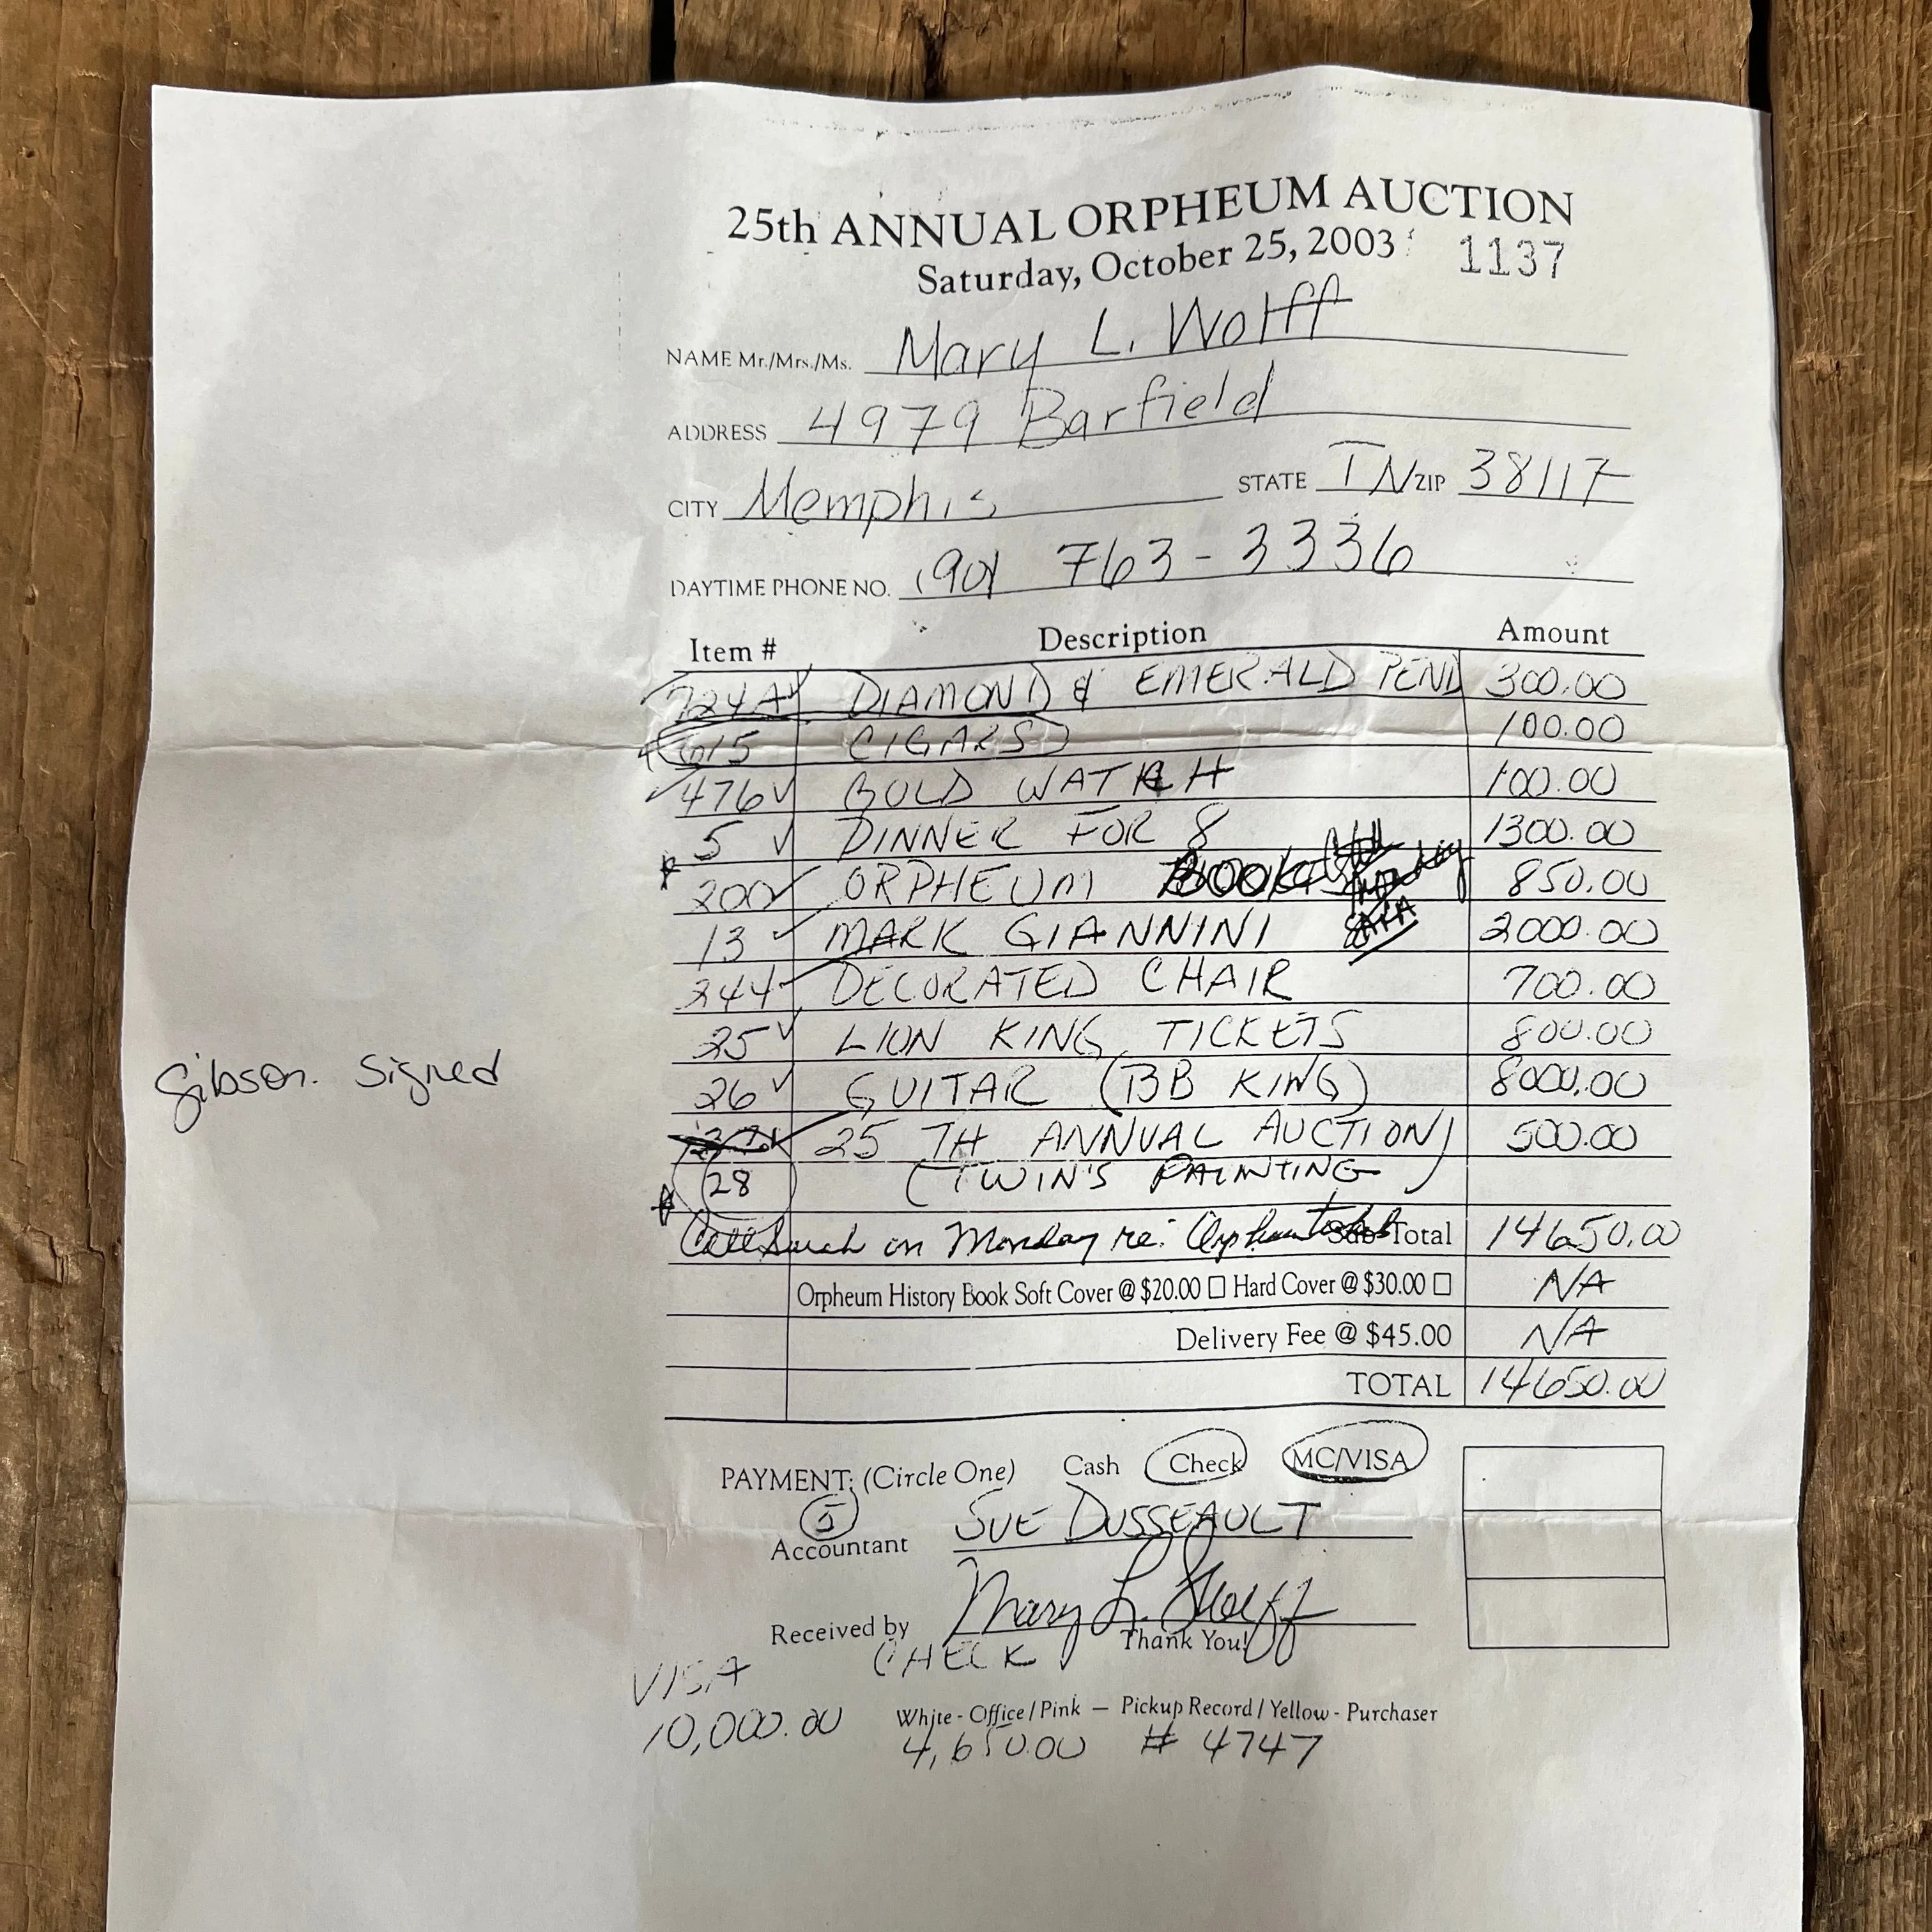 25th ANNUAL ORPHEUM AUCTION
Saturday, October 25, 2003 1137
NAME Mr./Mrs./Ms. Mary L. Wolff
ADDRESS 4979 Barfield
CITY Memphis STATE TN ZIP 38117
DAYTIME PHONE NO. (901 763-3336
Item # Description Amount
724A DIAMOND & EMERALD PEND 300.00
615 CIGARS 100.00
476 GOLD WATCH 100.00
5 DINNER FOR 8 1300.00
200 ORPHEUM 850.00
13 MARK GIANNINI 2000.00
244 DECORATED CHAIR 700.00
25 LION KING TICKETS 800.00
Gibson. Signed
26 GUITAR (BB KING) 8000.00
25 TH ANNUAL AUCTION 500.00
28 (TWIN'S PAINTING)
on Monday re: Sub Total 14650.00
Orpheum History Book Soft Cover @ $20.00 ☐ Hard Cover @ $30.00 ☐ NA
Delivery Fee @ $45.00 NA
TOTAL 14650.00
PAYMENT: (Circle One) Cash Check MC/VISA
5
Accountant SUE DUSSEAULT
Received by Mary L. Wolff
Thank You!
VISA CHECK
White - Office / Pink — Pickup Record / Yellow - Purchaser
10,000.00 4,650.00 # 4747